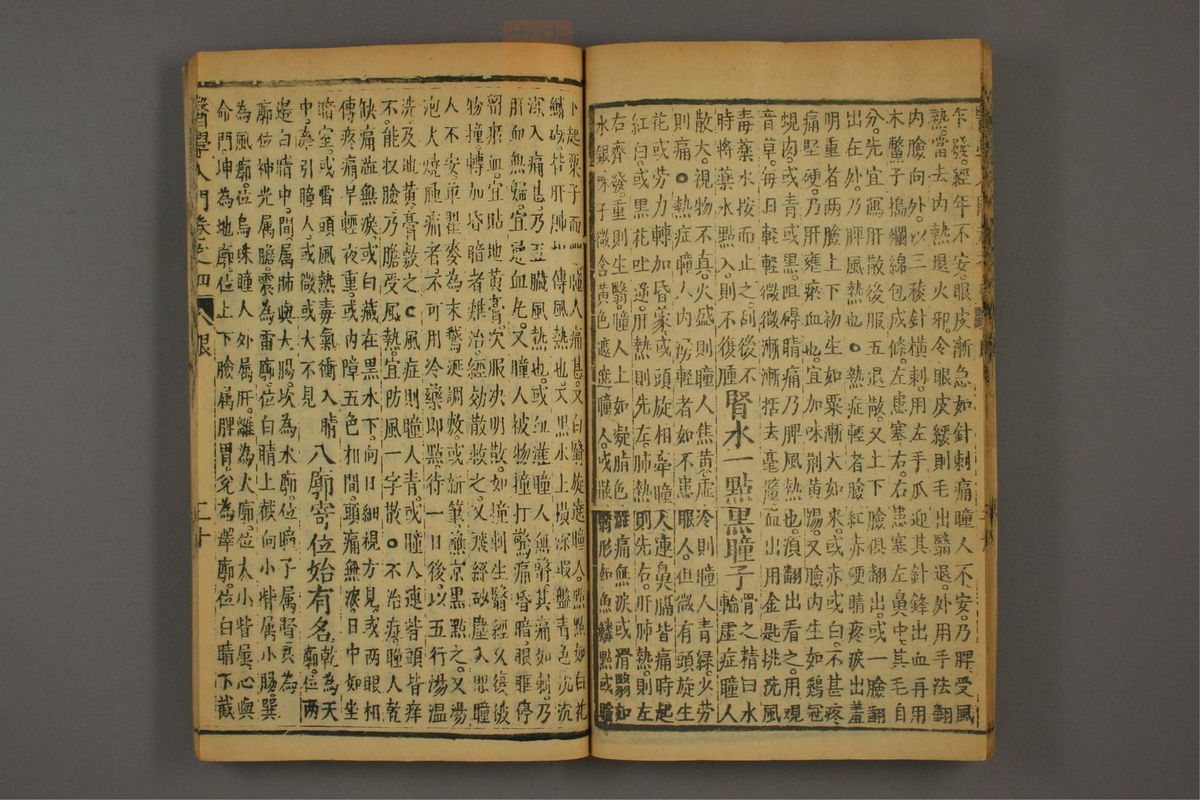 乍發經年不安眼皮漸急如針刺痛瞳人不安乃脾受風
熱當去內熱退火邪令眼皮緩則毛出翳退外用手法翻
內瞼向外以三稜針橫刺用左手瓜迎其針鋒出血再用
木鱉子搗爛綿包成條左患塞右右患塞左鼻中其毛自
分先宜瀉肝散後服五退散又上下瞼俱翻出或一瞼翻
出在外乃脾風熱也熱症輕者瞼紅赤硬睛疼淚出羞
明重者兩瞼上下初生如粟漸大如米或赤或白不甚疼
痛堅硬乃肝壅瘀血也宜加味荊黃湯又瞼內生如雞冠
蜆肉或青或黑阻碍睛痛乃脾風熱也須翻出看之用
音草每日輕輕微微漸漸括去毫釐血出用金匙挑洗風
毒藥水按而止之刮後不
時將藥水點入則不復腫 腎水一點黑瞳子 骨之精曰水輪虛症瞳人
散大視物不真火盛則瞳人焦黃虛冷則瞳人青綠少勞
則痛熱症瞳人內𤺊輕者如不患眼人但微有頭旋生
花或勞力轉加昏蒙或頭旋相牽瞳人連鼻膈皆痛時起
紅白或黑花吐逆肝熱則先左肺熱則先右肝肺熱則左
右齊發重則生翳瞳人上如凝脂色澀痛無淚或滑翳如
水銀珠子微含黃色遮遶瞳人或散翳形如魚鱗點或瞼
下起粟子而 瞳人痛甚又白翳旋遶瞳人點點如白花
鱗砂皆肝肺相傳風熱也又黑水上橫深瑕盤青色沉沉
深入痛甚乃五臟風熱也或血灌瞳人無翳其痛如刺乃
肝血無歸宜急血凢又瞳人被物撞打驚痛昏暗眼睚停
留瘀血宜貼地黃膏次服決明散如撞刺生翳經久復被
物撞轉加昏暗者難治經効散救之又飛絲砂塵入眼瞳
人不安單瞿麥為末鵝涎調敷或新筆蘸京墨點之又湯
泡火燒腫痛者不可用冷藥即點待一日後以五行湯溫
洗及地黃膏敷之風症則瞳人青或瞳人連眥頭皆痒
不能收瞼乃膽受風熱宜防風一字散不治瘥瞳人乾
缺痛澁無淚或白藏在黑水下向日細視方見或兩眼相
傳疼痛早輕夜重或內障五色相間頭痛無淚日中如坐
暗室或雷頭風熱毒氣衝入睛
中牽引瞳人或微或大不見 八廓寄位始有名 乾為天廓位兩
邊白睛中間屬肺與大腸坎為水廓位瞳子屬腎艮為
廓位神光屬膽震為雷廓位白睛上截向小眥屬小腸巽
為風廓位烏珠瞳人外屬肝離為火廓位大小眥屬心與
命門坤為地廓位上下瞼屬脾胃兌為澤廓位白睛下截
醫學入門卷之四 眼 三十